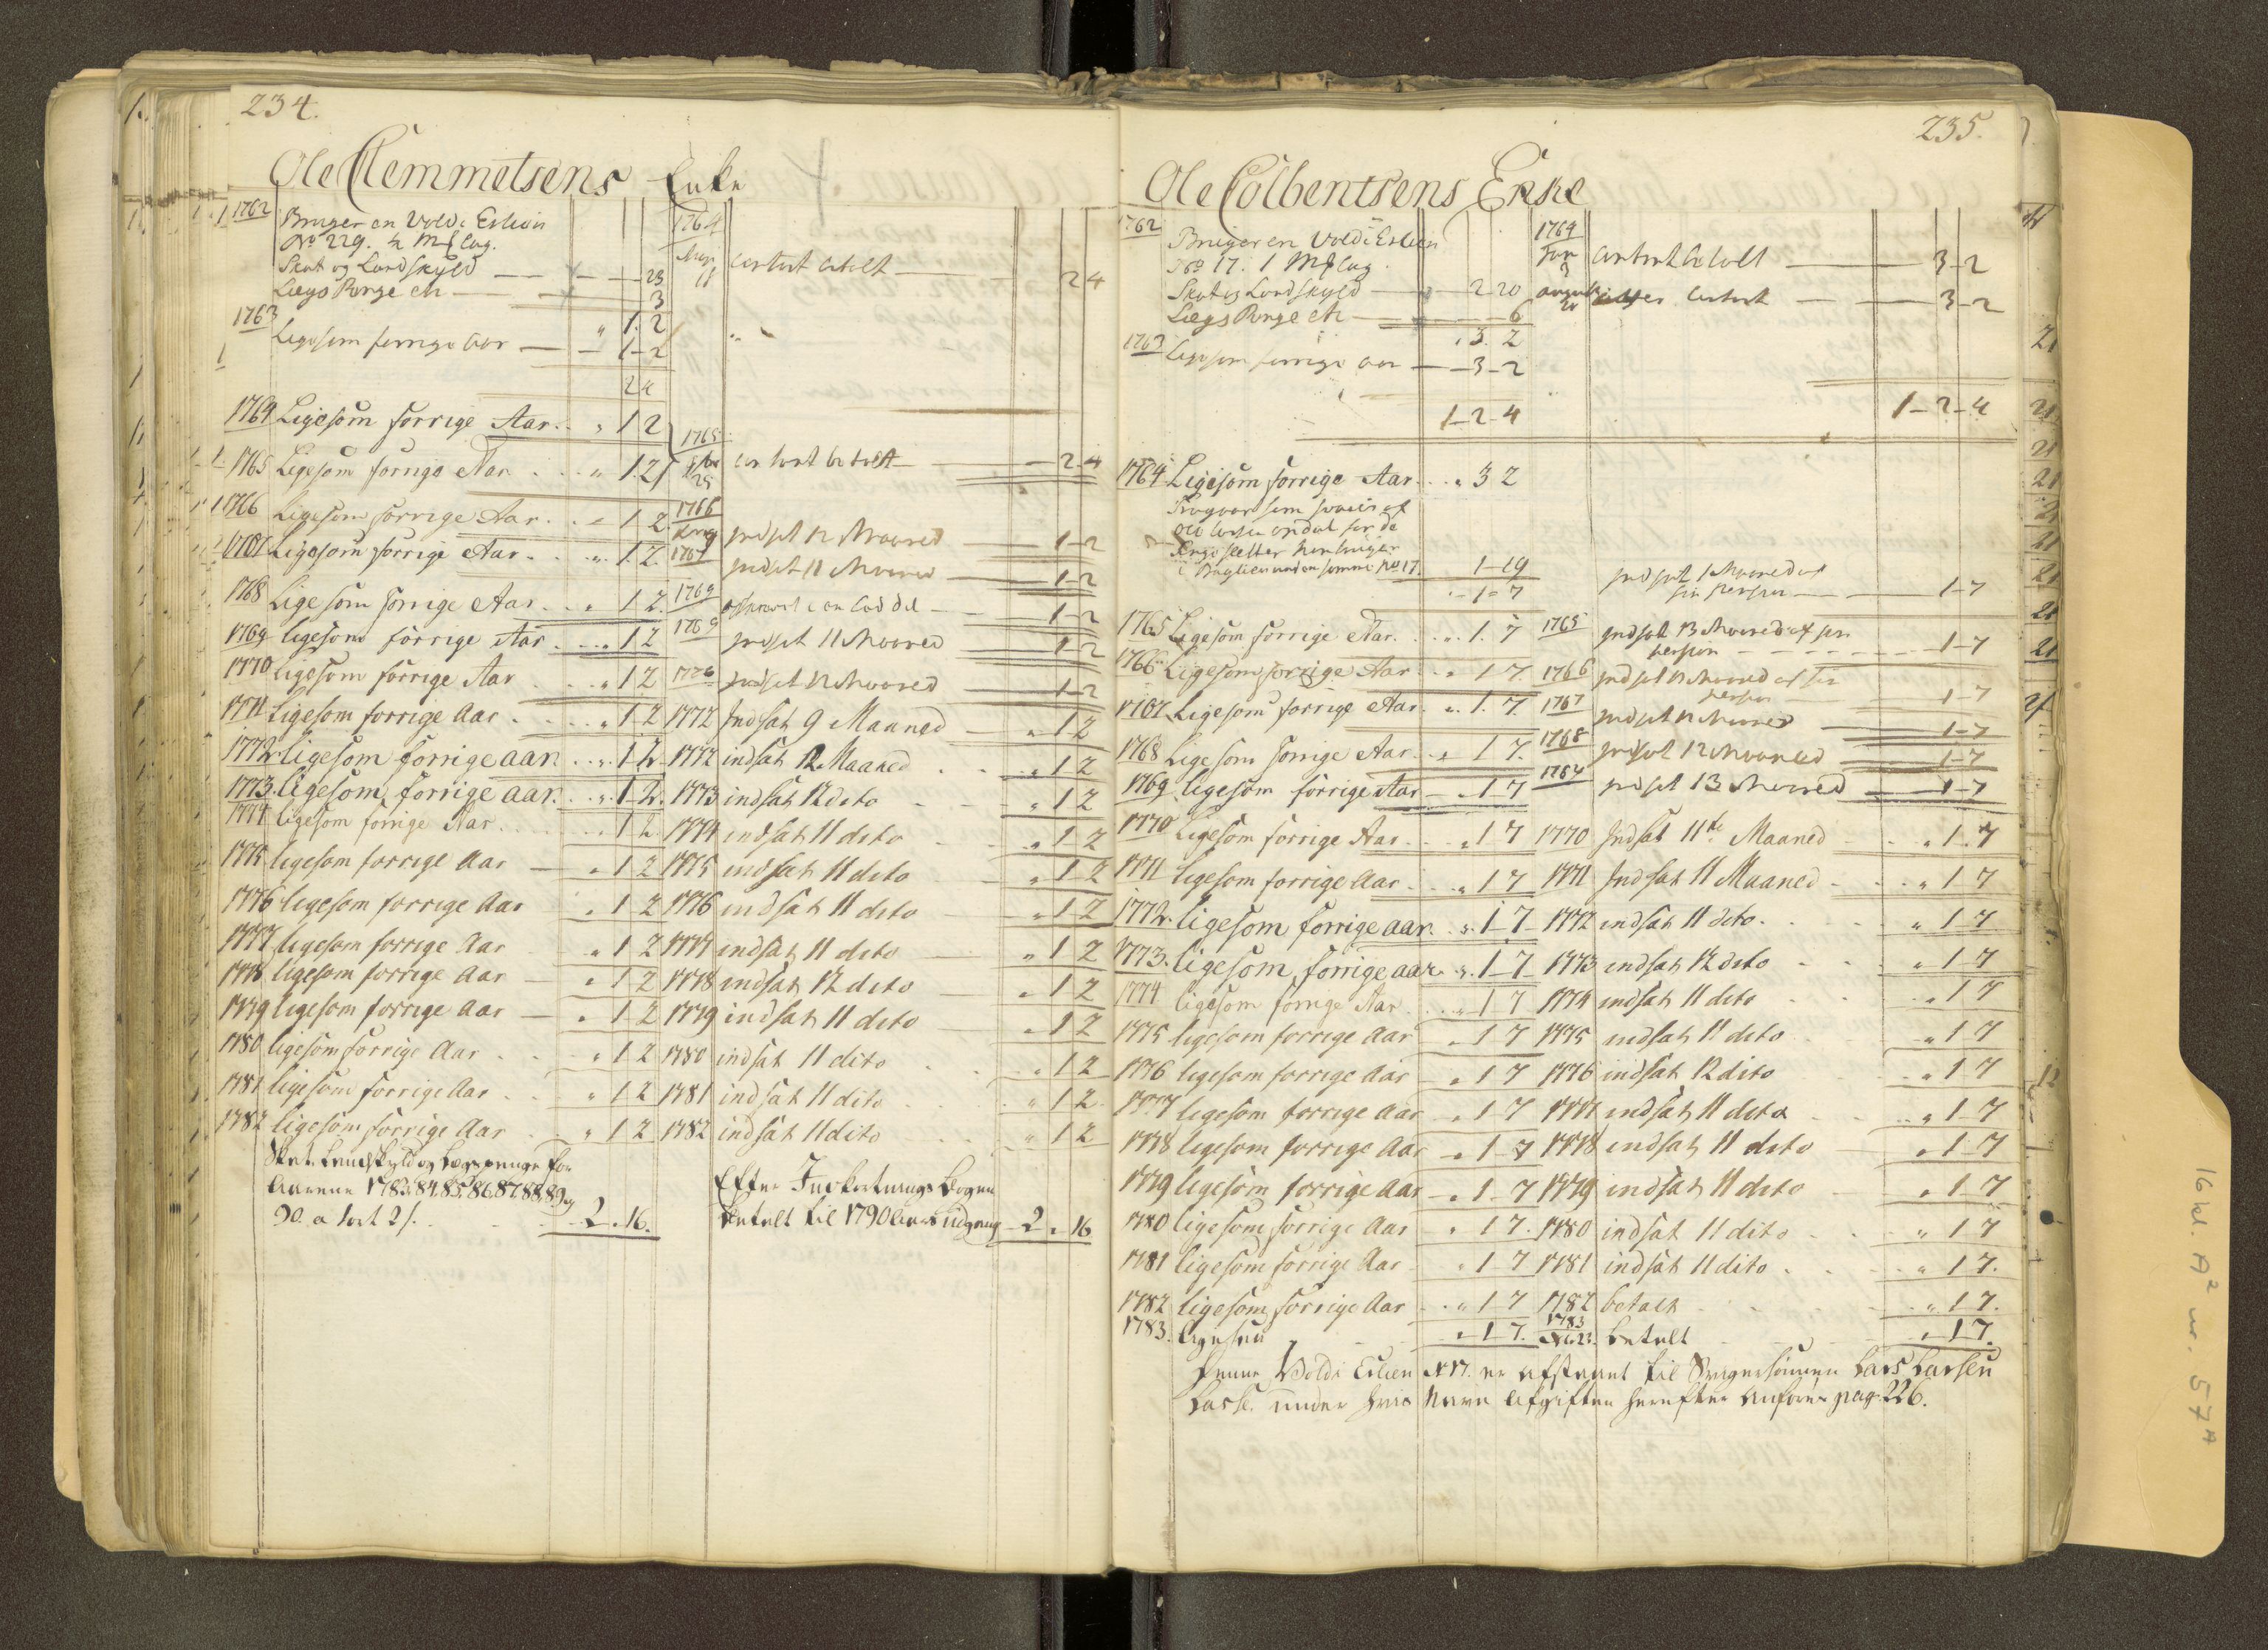 234.
Ole Clemmetsens Enke
1762 Bruger en Vold i Eslien
No 229. ½ Mf lag.
Skat og Landskyld — 23
Lægs Penge — 3
" 1. 2
1763 Ligesom forrige Aar — 1-2
24
1764 Ligesom forrige Aar . . " 1 2
1765 Ligesom forrige Aar . . " 1. 2
1766 Ligesom forrige Aar . . " 1 2.
1767 Ligesom forrige Aar . . " 1. 2.
1768 Ligesom forrige Aar . . " 1 2.
1769 ligesom forrige Aar . . " 1 2
1770 ligesom forrige Aar . . " 1 2
1771 ligesom forrige Aar . . " 1 2
1772 ligesom forrige aar . . " 1 2.
1773. ligesom forrige aar. . . " 1 2.
1774 ligesom forrige Aar . . " 1 2
1775 ligesom forrige Aar — " 1 2
1776 ligesom forrige Aar " 1 2
1777 ligesom forrige Aar " 1 2
1778 ligesom forrige Aar — " 1 2
1779 ligesom forrige Aar — " 1 2
1780 ligesom forrige Aar . . " 1 2
1781 ligesom forrige Aar . . " 1 2
1782 ligesom forrige Aar . . " 1 2
Skat Landskyld og Lægspenge for
Aarene 1783. 84. 85. 86. 87. 88. 89 og
90. a 1 ort 2 s. . . 2 " 16.
1764
11 betalt — 2 4
1765
25 betalt — 2-4
1766 indset 12 Maaned — 1-2
1767 indset 11 Maaned — 1-2
1768 — 1-2
1769 indset 11 Maaned — 1-2
1770 indset 12 Maaned — 1-2
1772 Indsat 9 Maaned — " 1 2
1772 indsat 12 Maaned . . " 1 2
1773 indsat 12 dito " 1 2
1774 indsat 11 dito " 1 2
1775 indsat 11 dito " 1 2
1776 indsat 11 dito " 1 2
1777 indsat 11 dito " 1 2
1778 indsat 12 dito " 1 2
1779 indsat 11 dito " 1 2
1780 indsat 11 dito " 1 2
1781 indsat 11 dito " 1 2
1782 indsat 11 dito " 1 2
Efter Bogen
betalt til 1790 Aars udgang — 2 " 16
235.
Ole Colbentsens Enke
1762 Bruger en Vold i Eslien
No 17. 1 Mf lag
Skat og Landskyld — 2 20
Lægs Penge — 6
" 3. 2
1763 Ligesom forrige aar — 3-2
1-2-4
1764 Ligesom forrige Aar . . " 3 2
No 17. 1-19
" 1 " 7
1765 Ligesom forrige Aar . . " 1. 7
1766 Ligesom forrige Aar . . " 1 7.
1767 Ligesom forrige Aar . " 1. 7.
1768 Ligesom forrige Aar . . " 1 7.
1769 ligesom forrige Aar — " 1 7
1770 Ligesom forrige Aar . . " 1 7
1771 ligesom forrige Aar . . " 1 7
1772. ligesom forrige aar. . " 1 7
1773. ligesom forrige aar. " 1 7
1774 ligesom forrige Aar . . " 1 7
1775 ligesom forrige Aar " 1 7
1776 ligesom forrige Aar — " 1 7
1777 ligesom forrige Aar — " 1 7
1778 ligesom forrige Aar — " 1 7
1779 ligesom forrige Aar — " 1 7
1780 ligesom forrige Aar " 1 7.
1781 ligesom forrige Aar " 1 7
1782 ligesom forrige Aar . . " 1 7
1783. ligesaa " 1 7.
1764
Jan 3 betalt — 3-2
— 3-2
1-2-4
indsat 1 Maaned af
sin person — 1-7
1765 indsat 13 Maaned af sin
person — 1-7
1766 indset 12 Maaned af sin
person 1-7
1767 indset 12 Maaned — 1-7
1768 indset 12 Maaned — 1-7
indset 13 Maaned — 1-7
1770 Indsat 11te Maaned — " 1. 7
1771 Indsat 11 Maaned — " 1 7
1772 indsat 11 dito. " 1 7
1773 indsat 12 dito " 1 7
1774 indsat 11 dito " 1 7
1775 indsat 11 dito " 1 7
1776 indsat 12 dito " 1 7
1777 indsat 11 dito " 1 7
1778 indsat 11 dito " 1 7
1779 indsat 11 dito " 1 7
1780 indsat 11 dito " 1 7
1781 indsat 11 dito " 1 7.
1782 betalt " 1 7.
1783 betalt " 1 7.
Denne Vold i Eslien No 17. er afstaaet til Svigersønnen Lars Larsen
under hvis Navn Afgiften herefter anføres pag. 226.
16 kl. A² nr. 57ᴬ